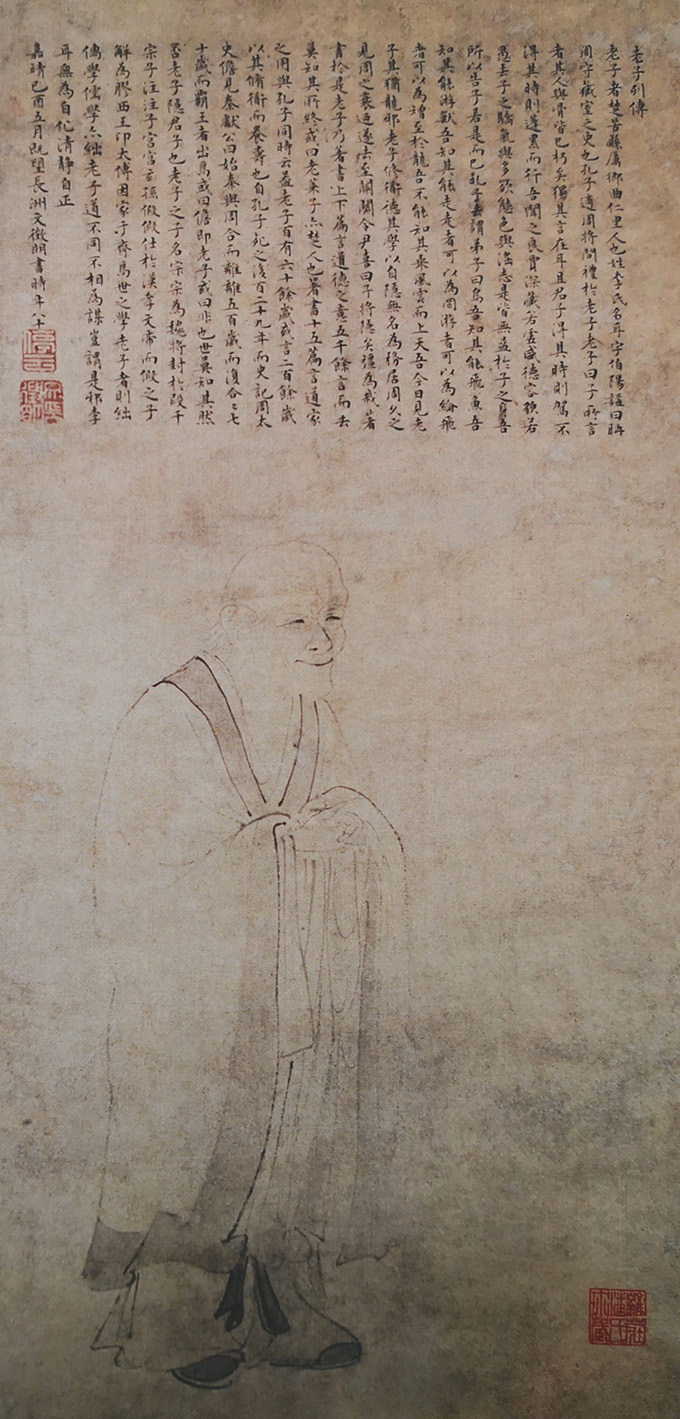 老子列傳
老子者楚苦縣厲鄉曲仁里人也姓李氏名耳字伯陽謚曰聃
周守藏室之史也孔子適周將問禮於老子老子曰子所言
者其人與骨皆已朽矣獨其言在耳且君子得其時則駕不
得其時則蓬累而行吾聞之良賈深藏若虛盛德容貌若
愚去子之驕氣與多欲態色與淫志是皆無益於子之身吾
所以告子若是而已孔子去謂弟子曰鳥吾知其能飛魚吾
知其能游獸吾知其能走走者可以為罔游者可以為綸飛
者可以為矰至於龍吾不能知其乘風雲而上天吾今日見老
子其猶龍邪老子修衜德其學以自隱無名為務居周久之
見周之衰迺遂去至關關令尹喜曰子將隱矣彊為我著
書於是老子乃著書上下篇言道德之意五千餘言而去
莫知其所終或曰老萊子亦楚人也著書十五篇言道家
之用與孔子同時云蓋老子百有六十餘歲或言二百餘歲
以其脩衜而養壽也自孔子死之後百二十九年而史記周太
史儋見秦獻公曰始秦與周合而離離五百歲而復合合七
十歲而霸王者出焉或曰儋即老子或曰非也世莫知其然
否老子隱君子也老子之子名宗宗為魏將封於段干
宗子注注子宮宮玄孫假假仕於漢孝文帝而假之子
解為膠西王卬太傅因家于齊焉世之學老子者則絀
儒學儒學亦絀老子道不同不相為謀豈謂是邪李
耳無為自化清靜自正
嘉靖己酉五月既望長洲文徵明書時年八十